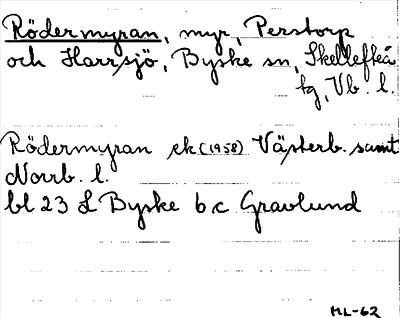 Rödermyran, myr, Perstorp
och Harrsjö, Byske sn, Skellefteå
tg, Vb. l.
Rödermyran ek (1958) Västerb. samt
Norrb. l.
bl 23 L Byske b c Gravlund
HL-62